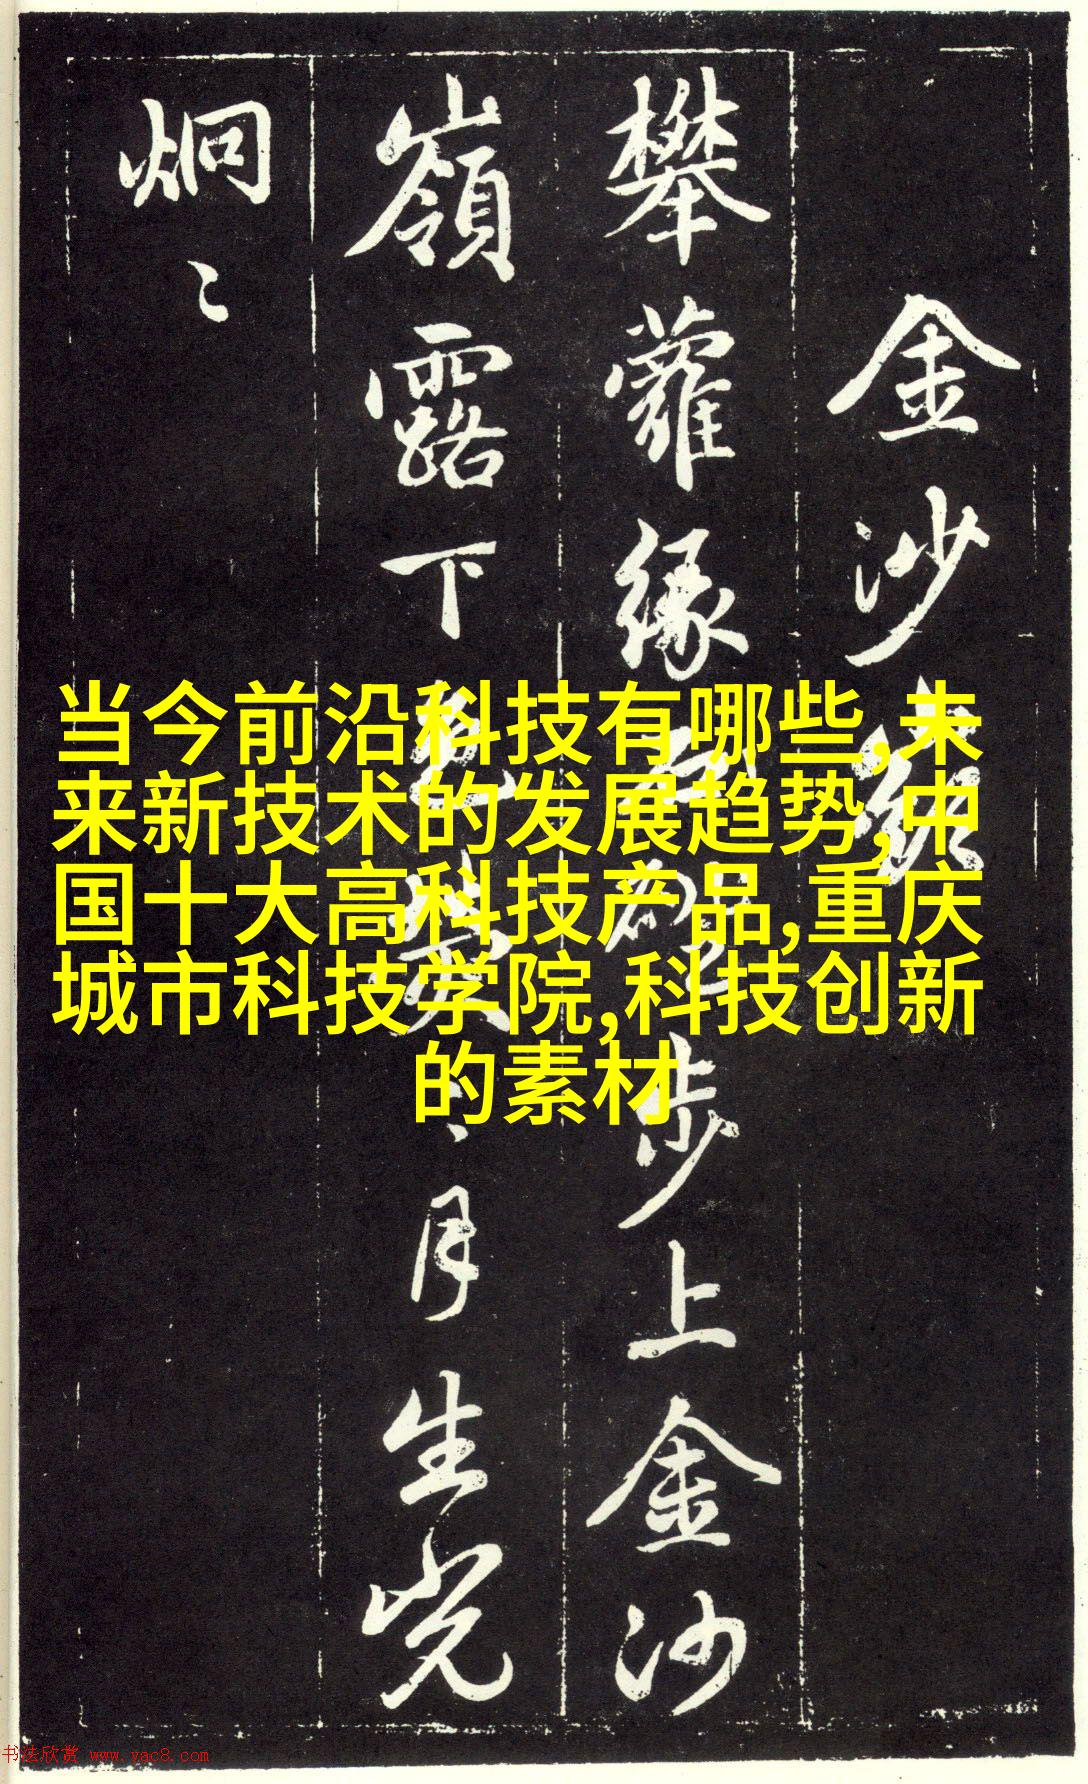 金沙
攀蘿緣步上金沙
嶺露下月生光
炯〻
当今前沿科技有哪些,未
来新技术的发展趋势,中
国十大高科技产品,重庆
城市科技学院,科技创新
的素材
书法欣赏 www.yac8.com